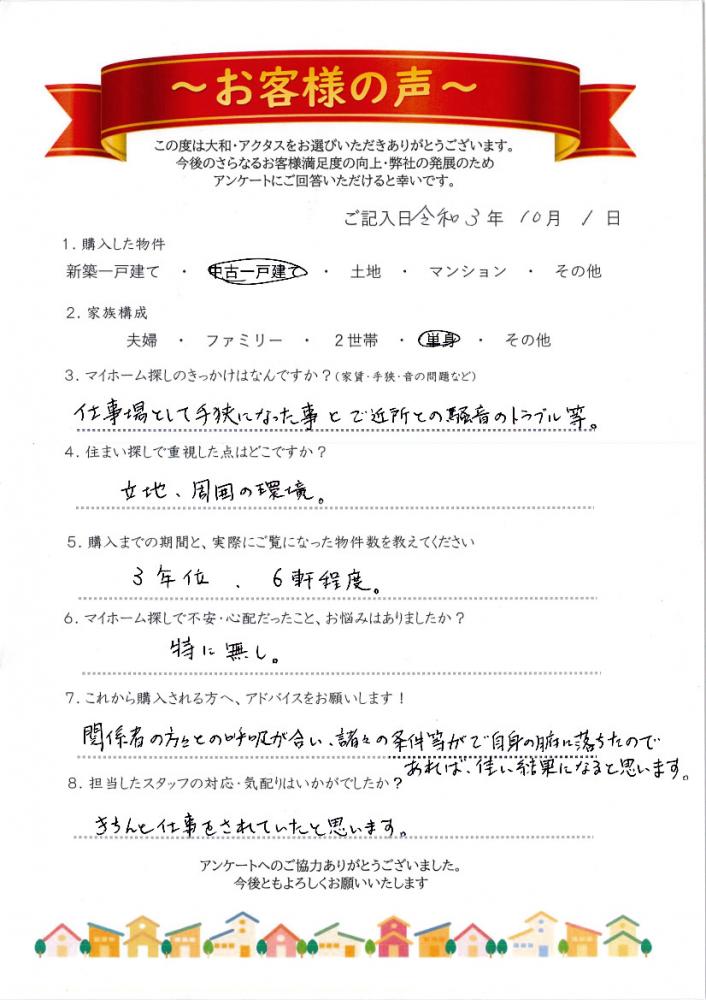 ～お客様の声～
この度は大和・アクタスをお選びいただきありがとうございます。
今後のさらなるお客様満足度の向上・弊社の発展のため
アンケートにご回答いただけると幸いです。
ご記入日 令和3年 10月 1日
1. 購入した物件
新築一戸建て ・ 中古一戸建て ・ 土地 ・ マンション ・ その他
2. 家族構成
夫婦 ・ ファミリー ・ 2世帯 ・ 単身 ・ その他
3. マイホーム探しのきっかけはなんですか？(家賃・手狭・音の問題など)
仕事場として手狭になった事とご近所との騒音のトラブル等。
4. 住まい探しで重視した点はどこですか？
立地、周囲の環境。
5. 購入までの期間と、実際にご覧になった物件数を教えてください
3年位、6軒程度。
6. マイホーム探しで不安・心配だったこと、お悩みはありましたか？
特に無し。
7. これから購入される方へ、アドバイスをお願いします！
関係者の方々との呼吸が合い、諸々の条件等がご自身の腑に落ちたので
あれば、佳い結果になると思います。
8. 担当したスタッフの対応・気配りはいかがでしたか？
きちんと仕事をされていたと思います。
アンケートへのご協力ありがとうございました。
今後ともよろしくお願いいたします